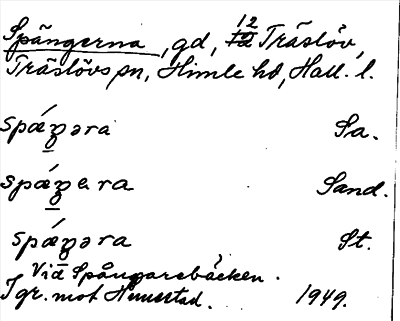 Spängerna, gd, 12 Träslöv,
Träslövs sn, Himle hd, Hall. l.
spǽŋəra Sa.
spǽŋera Sand.
spǽŋəra St.
Vid Spångarebäcken.
Tgr. mot Hunestad. 1949.